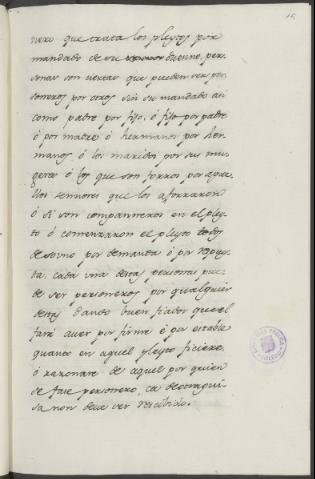 nero que trata los pleytos por
mandado de su duenno, per-
sonas son ciertas que pueden ser per-
soneros por otros sin su mandado asi
como padre por fijo, ó fijo por padre
ó por madre ó hermanos por her-
manos ó los maridos por sus mu-
geres ó los que son forros por aque-
llos sennores que los aforraron
ó si son companneros en el pley-
to ó comenzaron el pleyto todos
de so uno por demanda ó por respues-
ta. cada una destas personas pue-
de ser personeros por qualquier
destas dando buen fiador que él
fará aver por firme é por estable
quanto en aquel pleyto ficiere
ó razonare de aquel por quien
se face personero, ca de otra gui-
sa non deve ser rescibido.